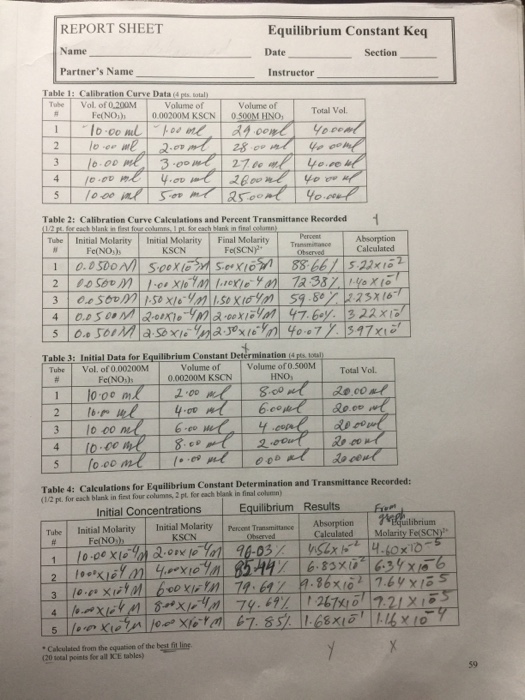 REPORT SHEET Equilibrium Constant Keq
Name Date Section
Partner's Name Instructor
Table 1: Calibration Curve Data (4 pts. total)
Tube # Vol. of 0.200M Fe(NO3)3 Volume of 0.00200M KSCN Volume of 0.500M HNO3 Total Vol.
1 10.00 ml 1.00 ml 29.00ml 40.00ml
2 10.00 ml 2.00 ml 28.00 ml 40.00ml
3 10.00 ml 3.00ml 27.00 ml 40.00 ml
4 10.00 ml 4.00 ml 26.00ml 40.00 ml
5 10.00 ml 5.00 ml 25.00ml 40.00ml
Table 2: Calibration Curve Calculations and Percent Transmittance Recorded
(1/2 pt. for each blank in first four columns, 1 pt. for each blank in final column)
Tube # Initial Molarity Fe(NO3)3 Initial Molarity KSCN Final Molarity Fe(SCN)2+ Percent Transmittance Observed Absorption Calculated
1 0.0500M 5.00x10-5M 5.00x10-5M 88.66% 5.22x10-2
2 0.0500M 1.00x10-4M 1.00x10-4M 72.38% 1.40x10-1
3 0.0500M 1.50x10-4M 1.50x10-4M 59.80% 2.23x10-1
4 0.0500M 2.00x10-4M 2.00x10-4M 47.60% 3.22x10-1
5 0.0500M 2.50x10-4M 2.50x10-4M 40.07% 3.97x10-1
Table 3: Initial Data for Equilibrium Constant Determination (4 pts. total)
Tube # Vol. of 0.00200M Fe(NO3)3 Volume of 0.00200M KSCN Volume of 0.500M HNO3 Total Vol.
1 10.00 ml 2.00 ml 8.00 ml 20.00ml
2 10.00 ml 4.00 ml 6.00ml 20.00 ml
3 10.00 ml 6.00 ml 4.00ml 20.00ml
4 10.00 ml 8.00 ml 2.00ml 20.00ml
5 10.00 ml 10.00 ml 0.00 ml 20.00ml
Table 4: Calculations for Equilibrium Constant Determination and Transmittance Recorded:
(1/2 pt. for each blank in first four columns, 2 pt. for each blank in final column)
Initial Concentrations Equilibrium Results From graph
Tube # Initial Molarity Fe(NO3)3 Initial Molarity KSCN Percent Transmittance Observed Absorption Calculated *Equilibrium Molarity Fe(SCN)2+
1 10.00x10-4M 2.00x10-4M 90.03% 4.56x10-2 4.60x10-5
2 10.00x10-4M 4.00x10-4M 85.44% 6.83x10-2 6.34x10-6
3 10.00x10-4M 6.00x10-4M 79.69% 9.86x10-2 7.64x10-5
4 10.00x10-4M 8.00x10-4M 74.69% 1.267x10-1 9.21x10-5
5 10.00x10-4M 10.00x10-4M 67.85% 1.68x10-1 1.16x10-4
* Calculated from the equation of the best fit line. Y X
(20 total points for all ICE tables)
59